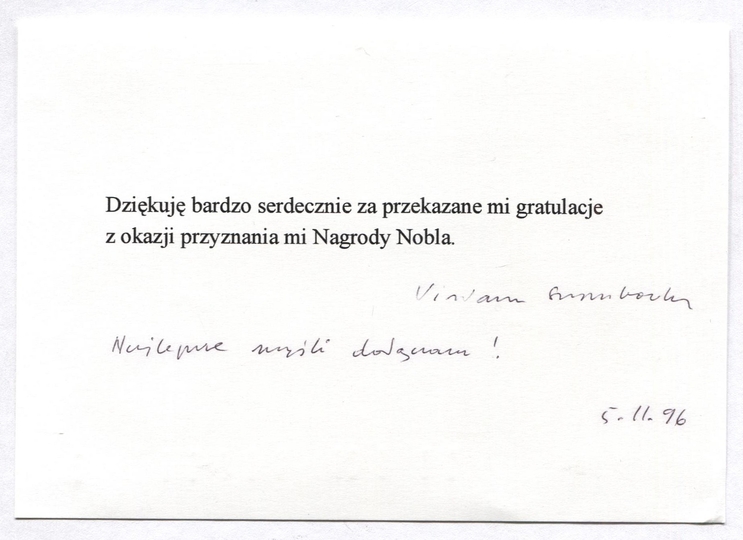 Dziękuję bardzo serdecznie za przekazane mi gratulacje
z okazji przyznania mi Nagrody Nobla.
Wisława Szymborska
Najlepsze myśli dołączam!
5.11.96